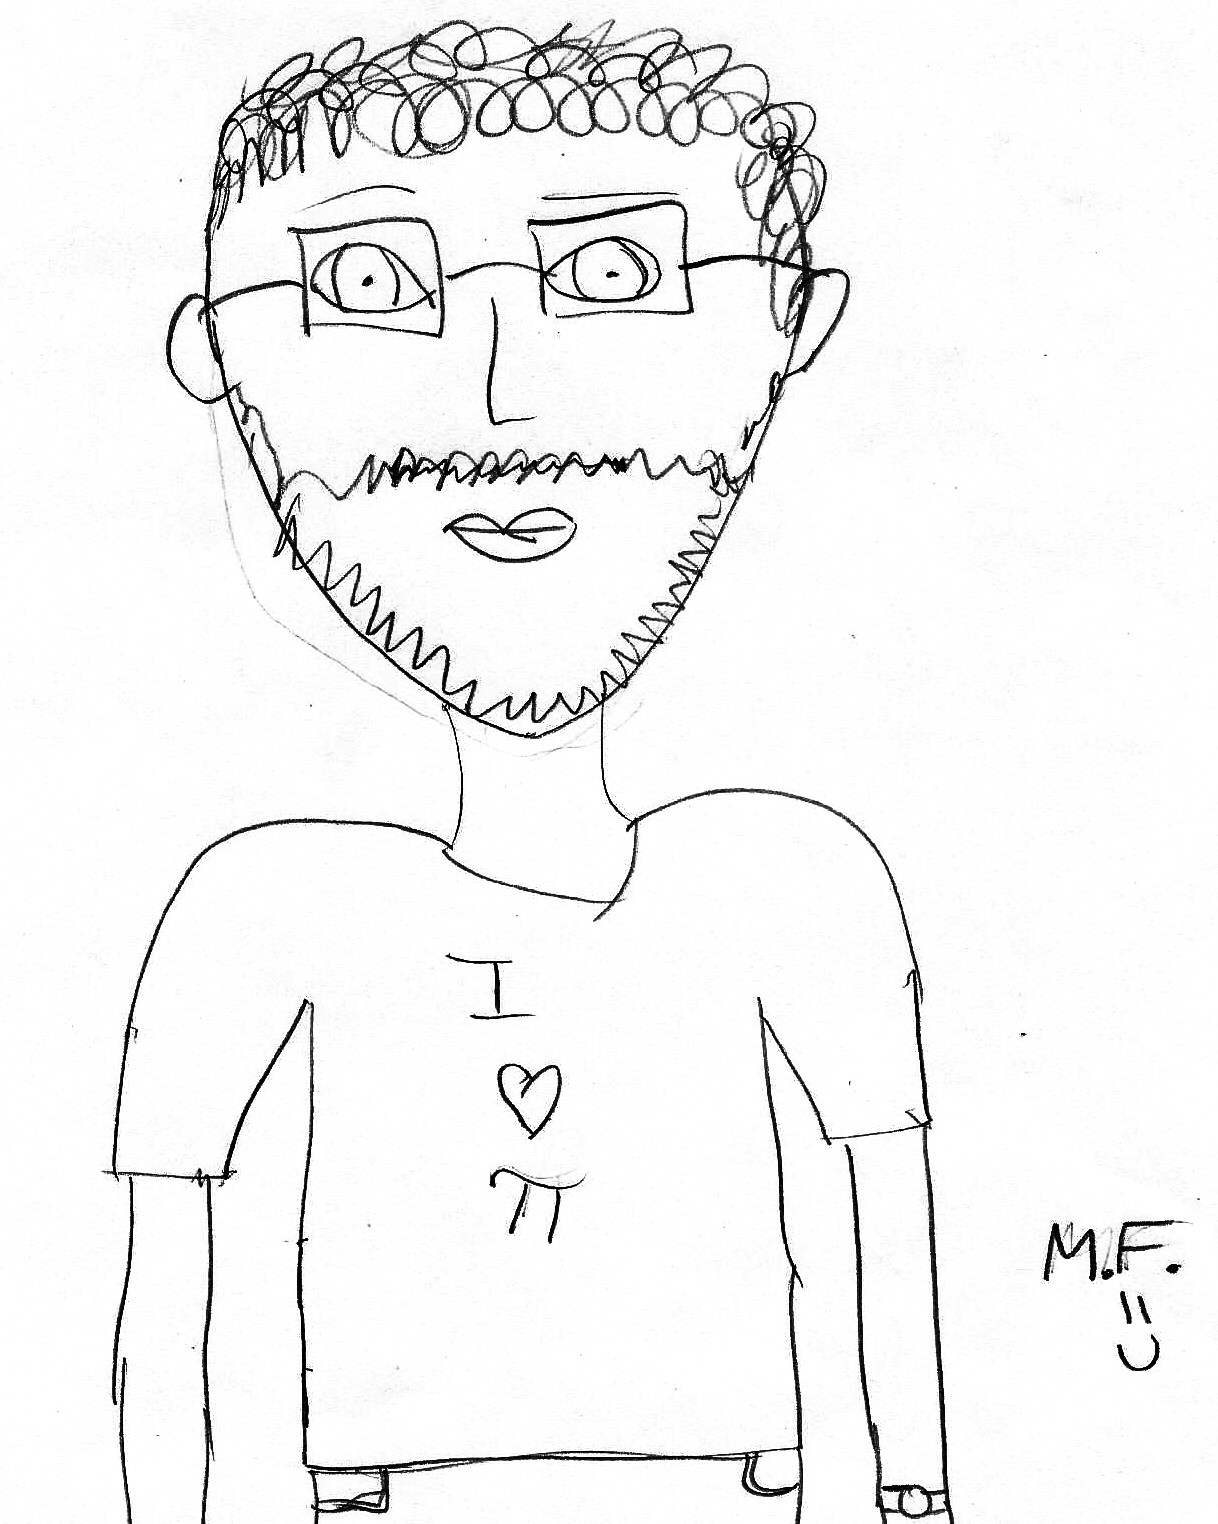 I
♡
π
M.F.